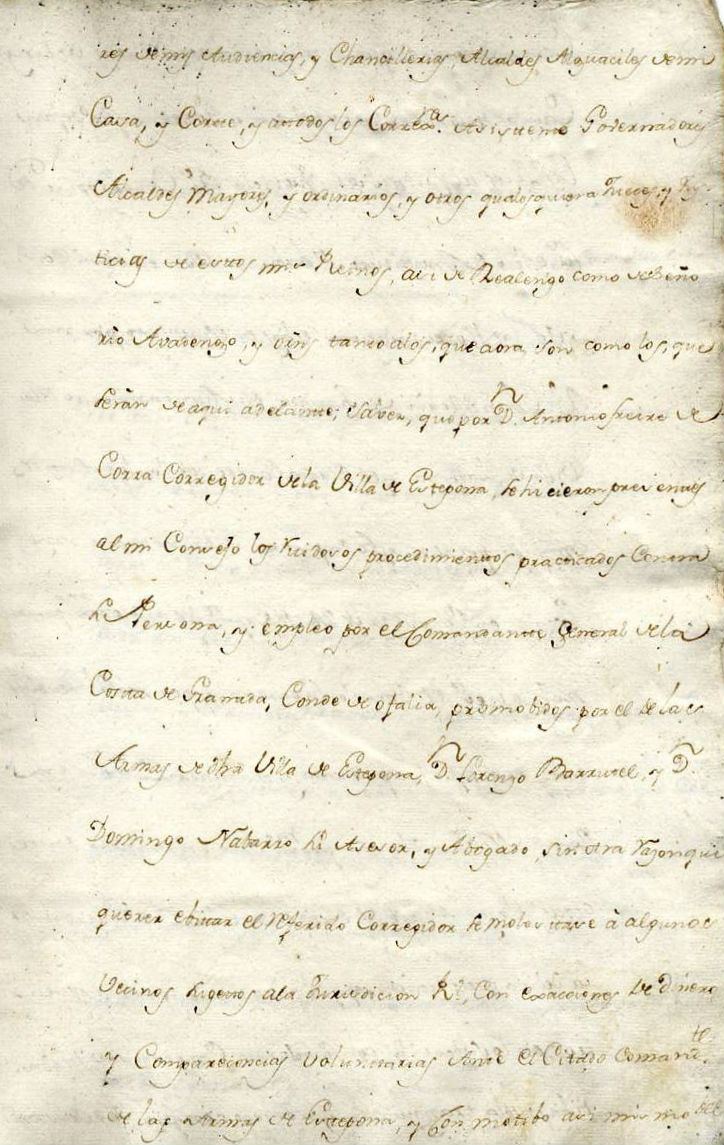 res de mis Audiencias, y Chancillerias, Alcaldes Alguaciles de mi
Casa, y Corte, y a todos los Corregres. Asistente Governadores
Alcaldes Mayores, y ordinarios, y otros qualesquiera Jueces, y Jus
ticias de estos mis Reinos, asi de Realengo como de Seño
rio Avadengo, y Ornes tanto a los, que aora son como los, que
seràn de aqui adelante; Saber, que por Dn. Antonio freire de
Corra Corregidor de la Villa de Estepona, se hicieron presentes
al mi Consejo los ruidosos procedimientos practicados Contra
su Persona, y empleo por el Comandante General de la
Costa de Granada, Conde de ofalia, promobidos por el de las
Armas de dha Villa de Estepona, Dn. Lorenzo Barrutel, y Dn.
Domingo Nabarro su Asesor, y Abogado, sin otra razon que
querer ebitar el referido Corregidor se molestase à algunos
Vecinos sugetos a la Jurisdicion Rl., con exacciones de Dinero
y Comparecencias Voluntarias Ante el Citado Comandte.
de las Armas de Estepona, y Con motibo asi mismo del